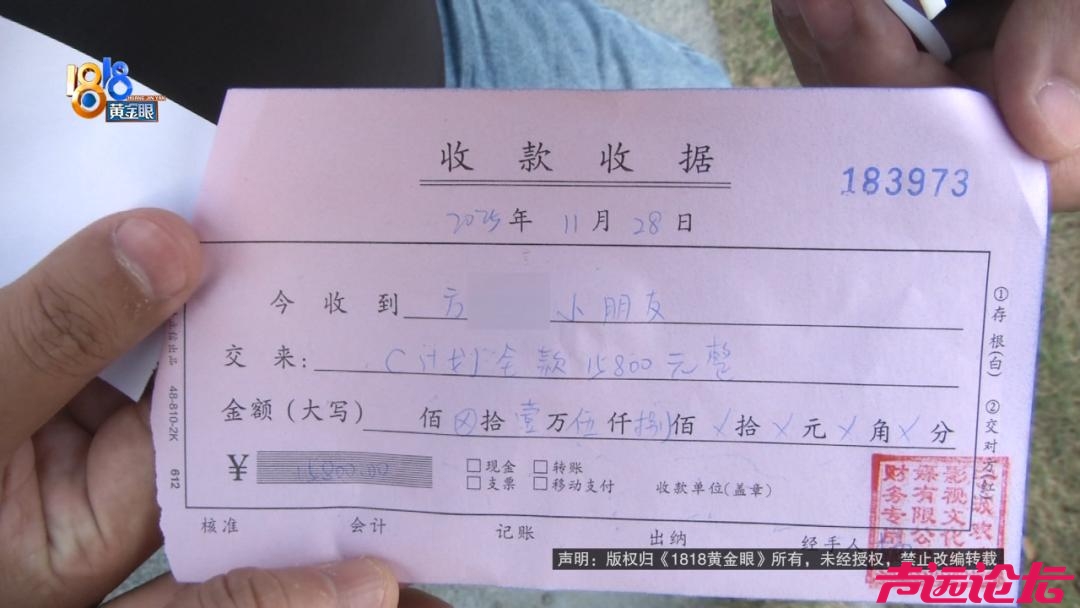 1818
黄金眼
收款收据
183973
2025年11月28日
今收到 方 小朋友
交来: C计划全款15800元整
金额(大写) 佰⊗拾壹万伍仟捌佰╳拾╳元╳角╳分
¥ 15800.00
□现金 □转账
□支票 □移动支付
收款单位(盖章)
核准 会计 记账 出纳 经手人
①存根(白) ②交对方(红)
48-810-2K 612
影视文化
有限公
财务专
声明:版权归《1818黄金眼》所有,未经授权,禁止改编转载
声远论坛